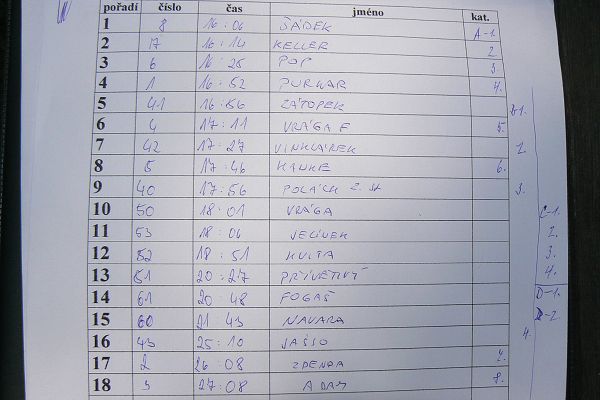 pořadí číslo čas jméno kat.
1 8 16:06 ŠÁDEK A-1.
2 17 16:14 KELLER 2.
3 6 16:25 POP 3
4 1 16:52 PURKAR 4.
5 41 16:56 ZÁTOPEK B-1.
6 4 17:11 VRÁGA F 5.
7 42 17:27 VINKLÁREK 2.
8 5 17:46 HANKE 6.
9 40 17:56 POLÁCH Z. st 3.
10 50 18:01 VRÁGA C-1.
11 53 18:06 JELÍNEK 2.
12 52 18:51 KULTA 3.
13 51 20:27 PŘÍVĚTIVÝ 4.
14 61 20:48 FOGAŠ D-1.
15 60 21:43 NAVARA D-2
16 43 25:10 JAŠŠO 4.
17 2 26:08 ZDENDA 7.
18 3 27:08 ADAM 8.